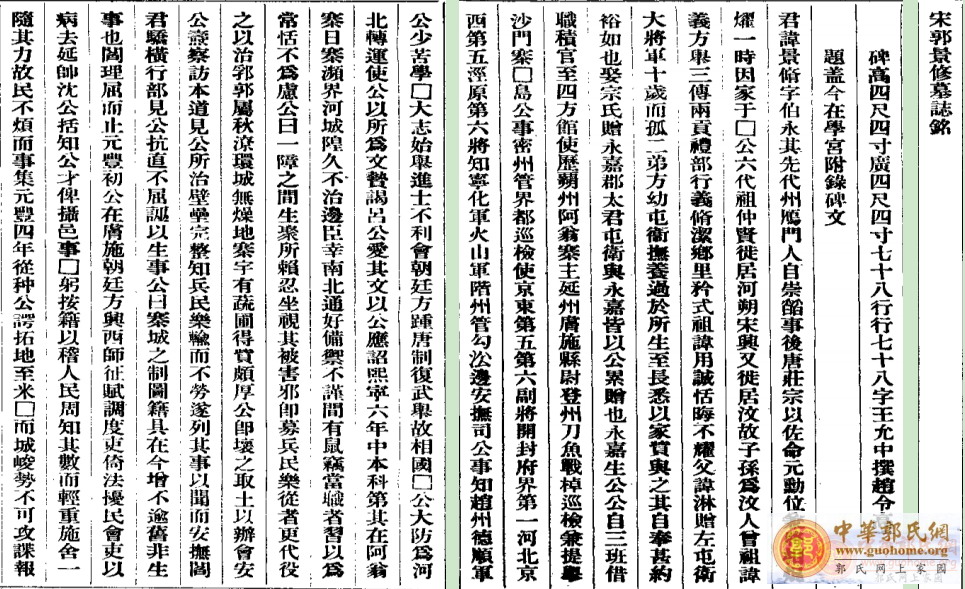 宋郭景修墓誌銘
碑高四尺四寸廣四尺四寸七十八行行七十八字王允中撰趙令
題盖今在學宮附錄碑文
君諱景脩字伯永其先代州鴈門人自崇韜事後唐莊宗以佐命元勳位
燿一時因家于□公六代祖仲賢徙居河朔宋興又徙居汶故子孫爲汶人曾祖諱
義方舉三傳兩貢禮部行義脩潔鄉里矜式祖諱用誠恬晦不耀父諱淋贈左屯衛
大將軍十歲而孤二弟方幼屯衛撫養過於所生至長悉以家貲與之其自奉甚約
裕如也娶宗氏贈永嘉郡太君屯衛與永嘉皆以公累贈也永嘉生公公自三班借
職積官至四方館使歷朔州阿翁寨主延州膚施縣尉登州刀魚戰棹巡檢兼提舉
沙門寨□島公事密州管界都巡檢使京東第五第六副將開封府界第一河北京
西第五涇原第六將知寧化軍火山軍階州管勾㳂邊安撫司公事知趙州德順軍
公少苦學□大志始舉進士不利會朝廷方踵唐制復武舉故相國□公大防爲河
北轉運使公以所爲文贄謁呂公愛其文以公應詔熙寧六年中本科第其在阿翁
寨日寨瀕界河城隍久不治邊臣幸南北通好備禦不謹間有鼠竊當城者習以爲
常恬不爲慮公曰一障之間生聚所賴忍坐視其被害邪卽募兵民樂從者更代役
之以治郛郭屬秋潦環城無燥地寨宇有蔬圃得賞頗厚公卽壞之取土以辦會安
公燾察訪本道見公所治壁壘完整知兵民樂輸而不勞遂列其事以聞而安撫閻
君驕橫行部見公抗直不屈誣以生事公曰寨城之制圖籍具在今增不逾舊非生
事也閻理屈而止元豐初公在膚施朝廷方興西師征賦調度吏倚法擾民會吏以
病去延帥沈公括知公才俾攝邑事□躬按籍以稽人民周知其數而輕重施舍一
隨其力故民不煩而事集元豐四年從种公諤拓地至米□而城峻勢不可攻諜報
中華郭氏網
www.guohome.org
郭氏网上家園